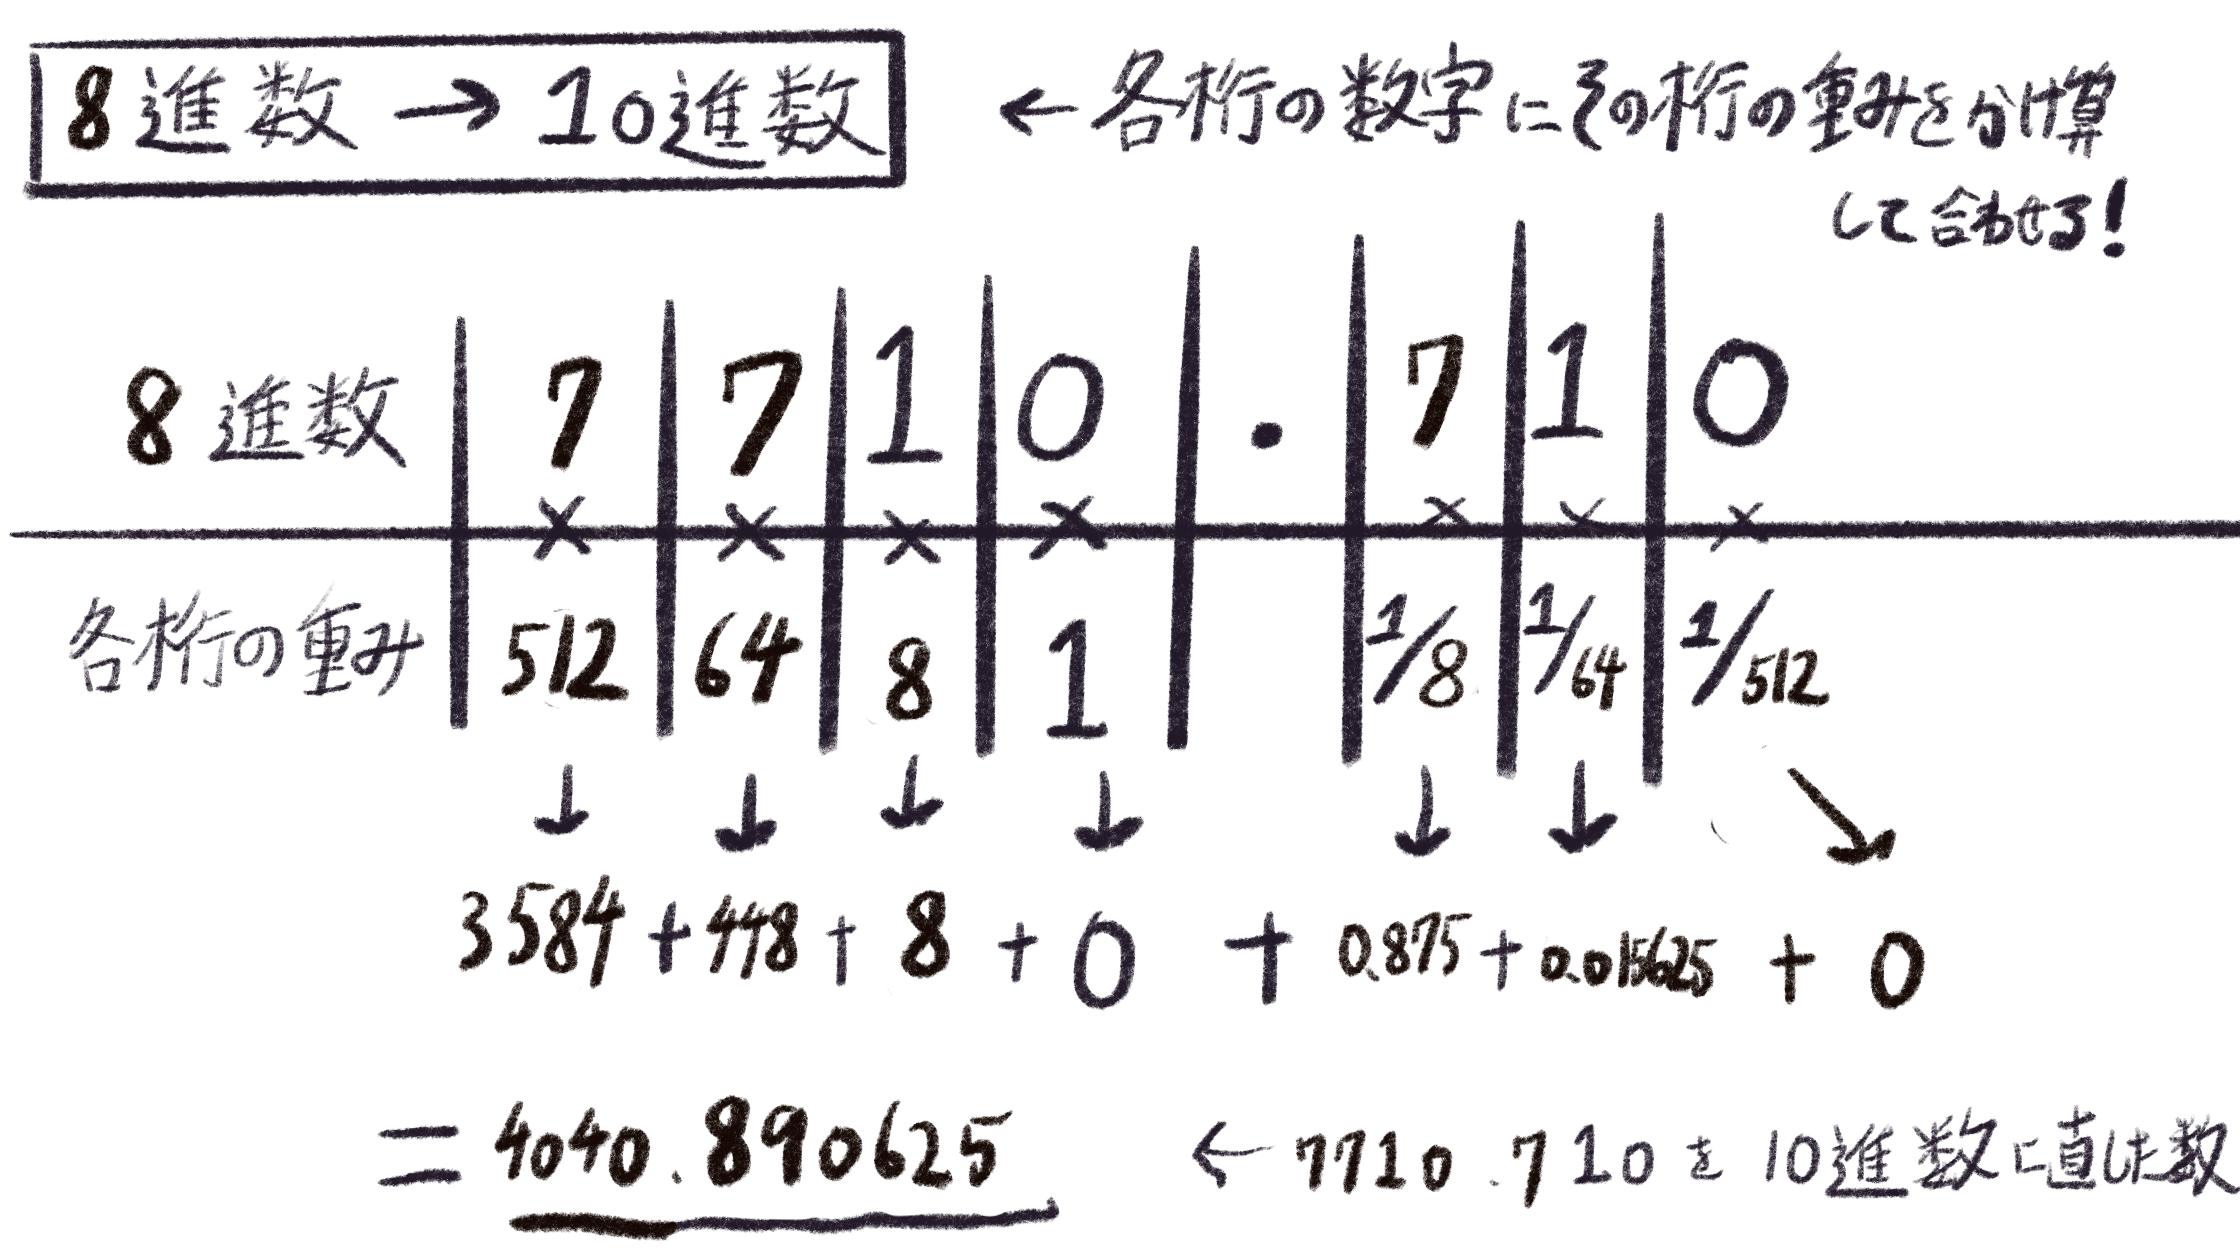 8進数→10進数 ←各桁の数字にその桁の重みをかけ算
して合わせる!
8進数 7 7 1 0 . 7 1 0
× × × × × × ×
各桁の重み 512 64 8 1 1/8 1/64 1/512
↓ ↓ ↓ ↓ ↓ ↓ ↘
3584+448+8+0+0.875+0.015625+0
=4040.890625 ←7710.710を10進数に直した数